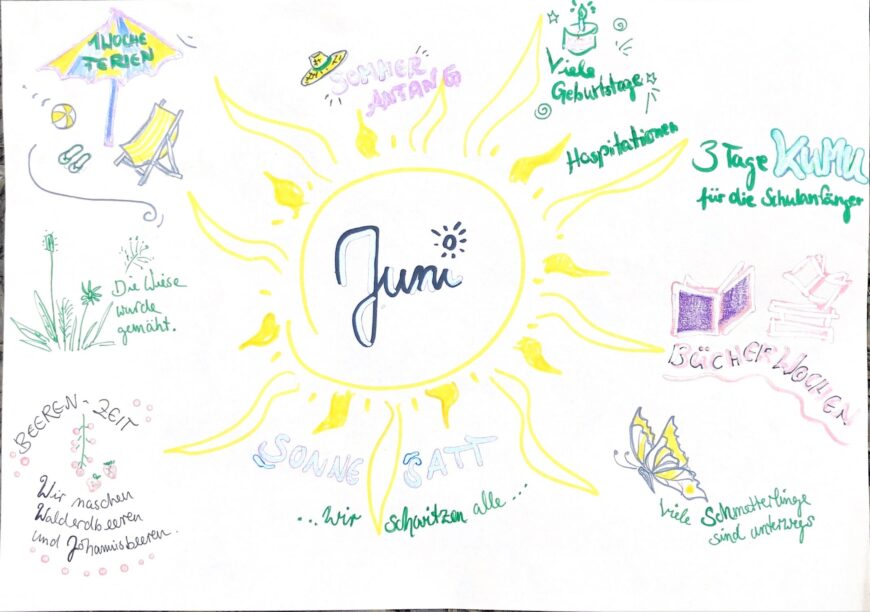 1 WOCHE
FERIEN
SOMMER
ANFANG
Viele
Geburtstage
Hospitationen
3 Tage KUMU
für die Schulanfänger
Juni
Die Wiese
wurde
gemäht.
BÜCHERWOCHEN
BEEREN-ZEIT
Wir naschen
Walderdbeeren
und Johannisbeeren.
SONNE SATT
...wir schwitzen alle...
viele Schmetterlinge
sind unterwegs